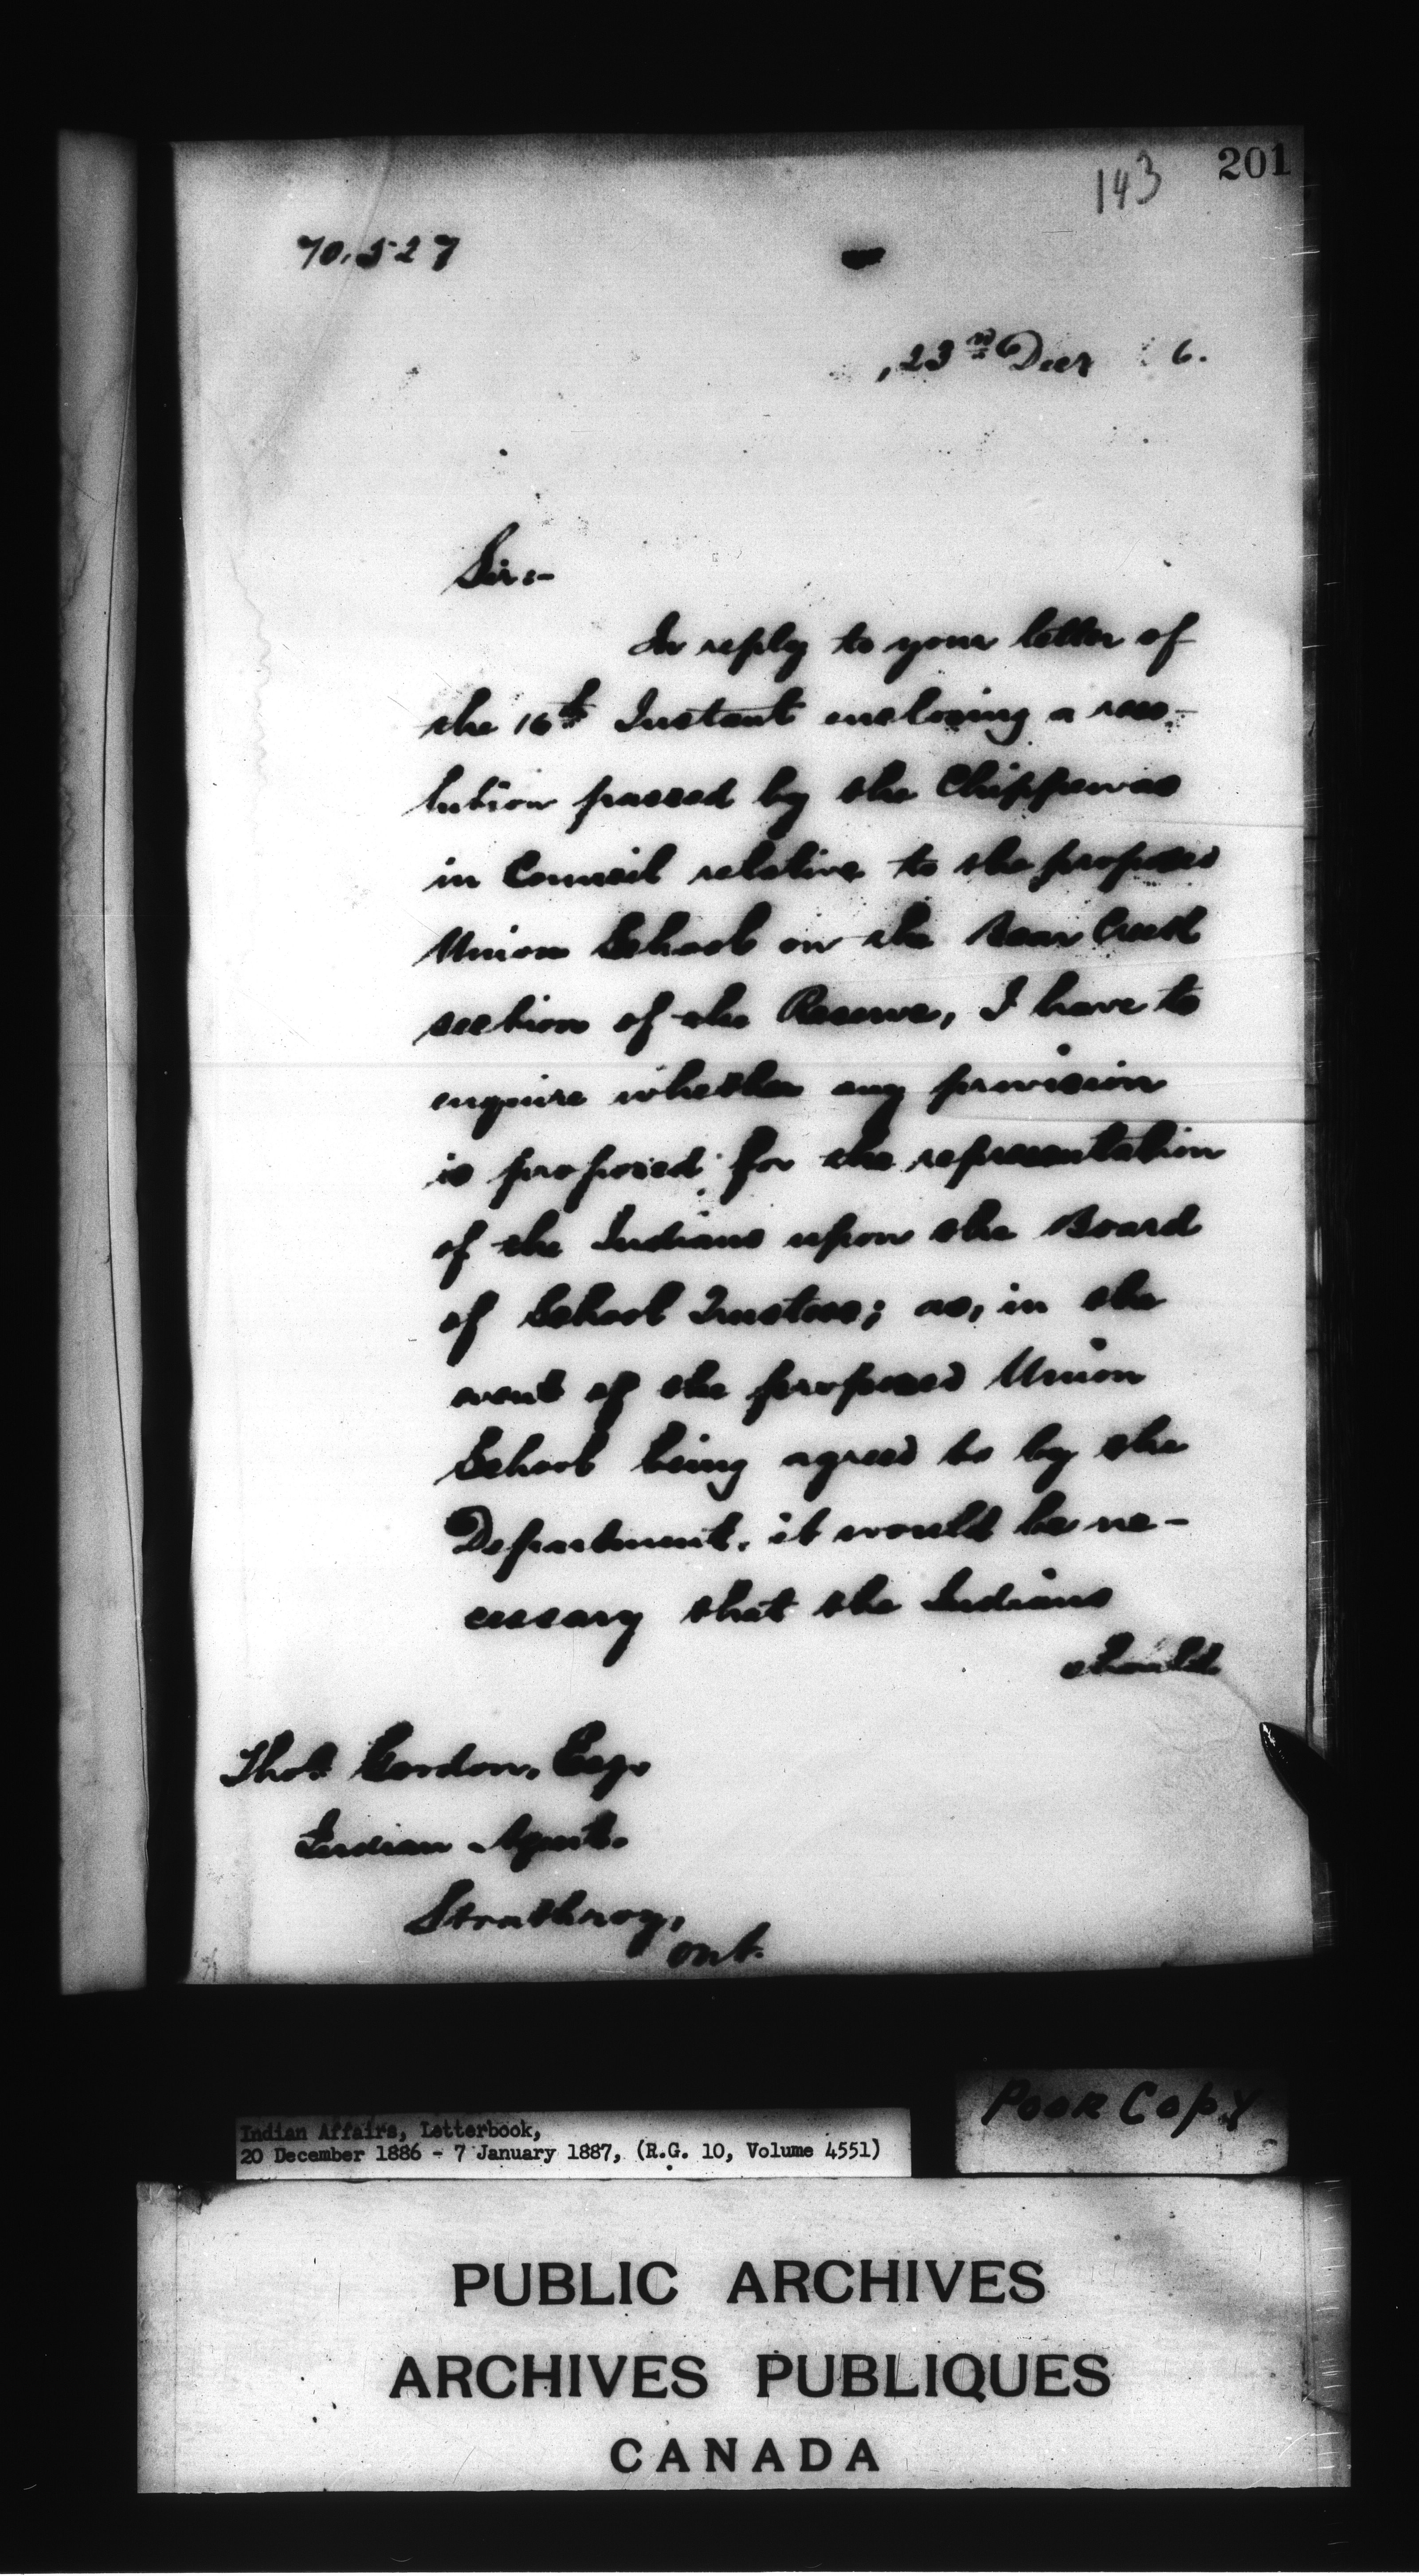 201
143
70,527
, 23rd Decr 6.
Sir:-
In reply to your letter of
the 16th Instant enclosing a reso-
lution passed by the Chippewas
in Council relative to the proposed
Union School on the Bear Creek
section of the Reserve, I have to
enquire whether any provision
is proposed for the representation
of the Indians upon the Board
of School Trustees; as, in the
event of the proposed Union
School being agreed to by the
Department, it would be ne-
cessary that the Indians
should
Thos. Gordon, Esq.
Indian Agent.
Strathroy,
Ont.
POOR COPY
Indian Affairs, Letterbook,
20 December 1886 - 7 January 1887, (R.G. 10, Volume 4551)
PUBLIC ARCHIVES
ARCHIVES PUBLIQUES
CANADA